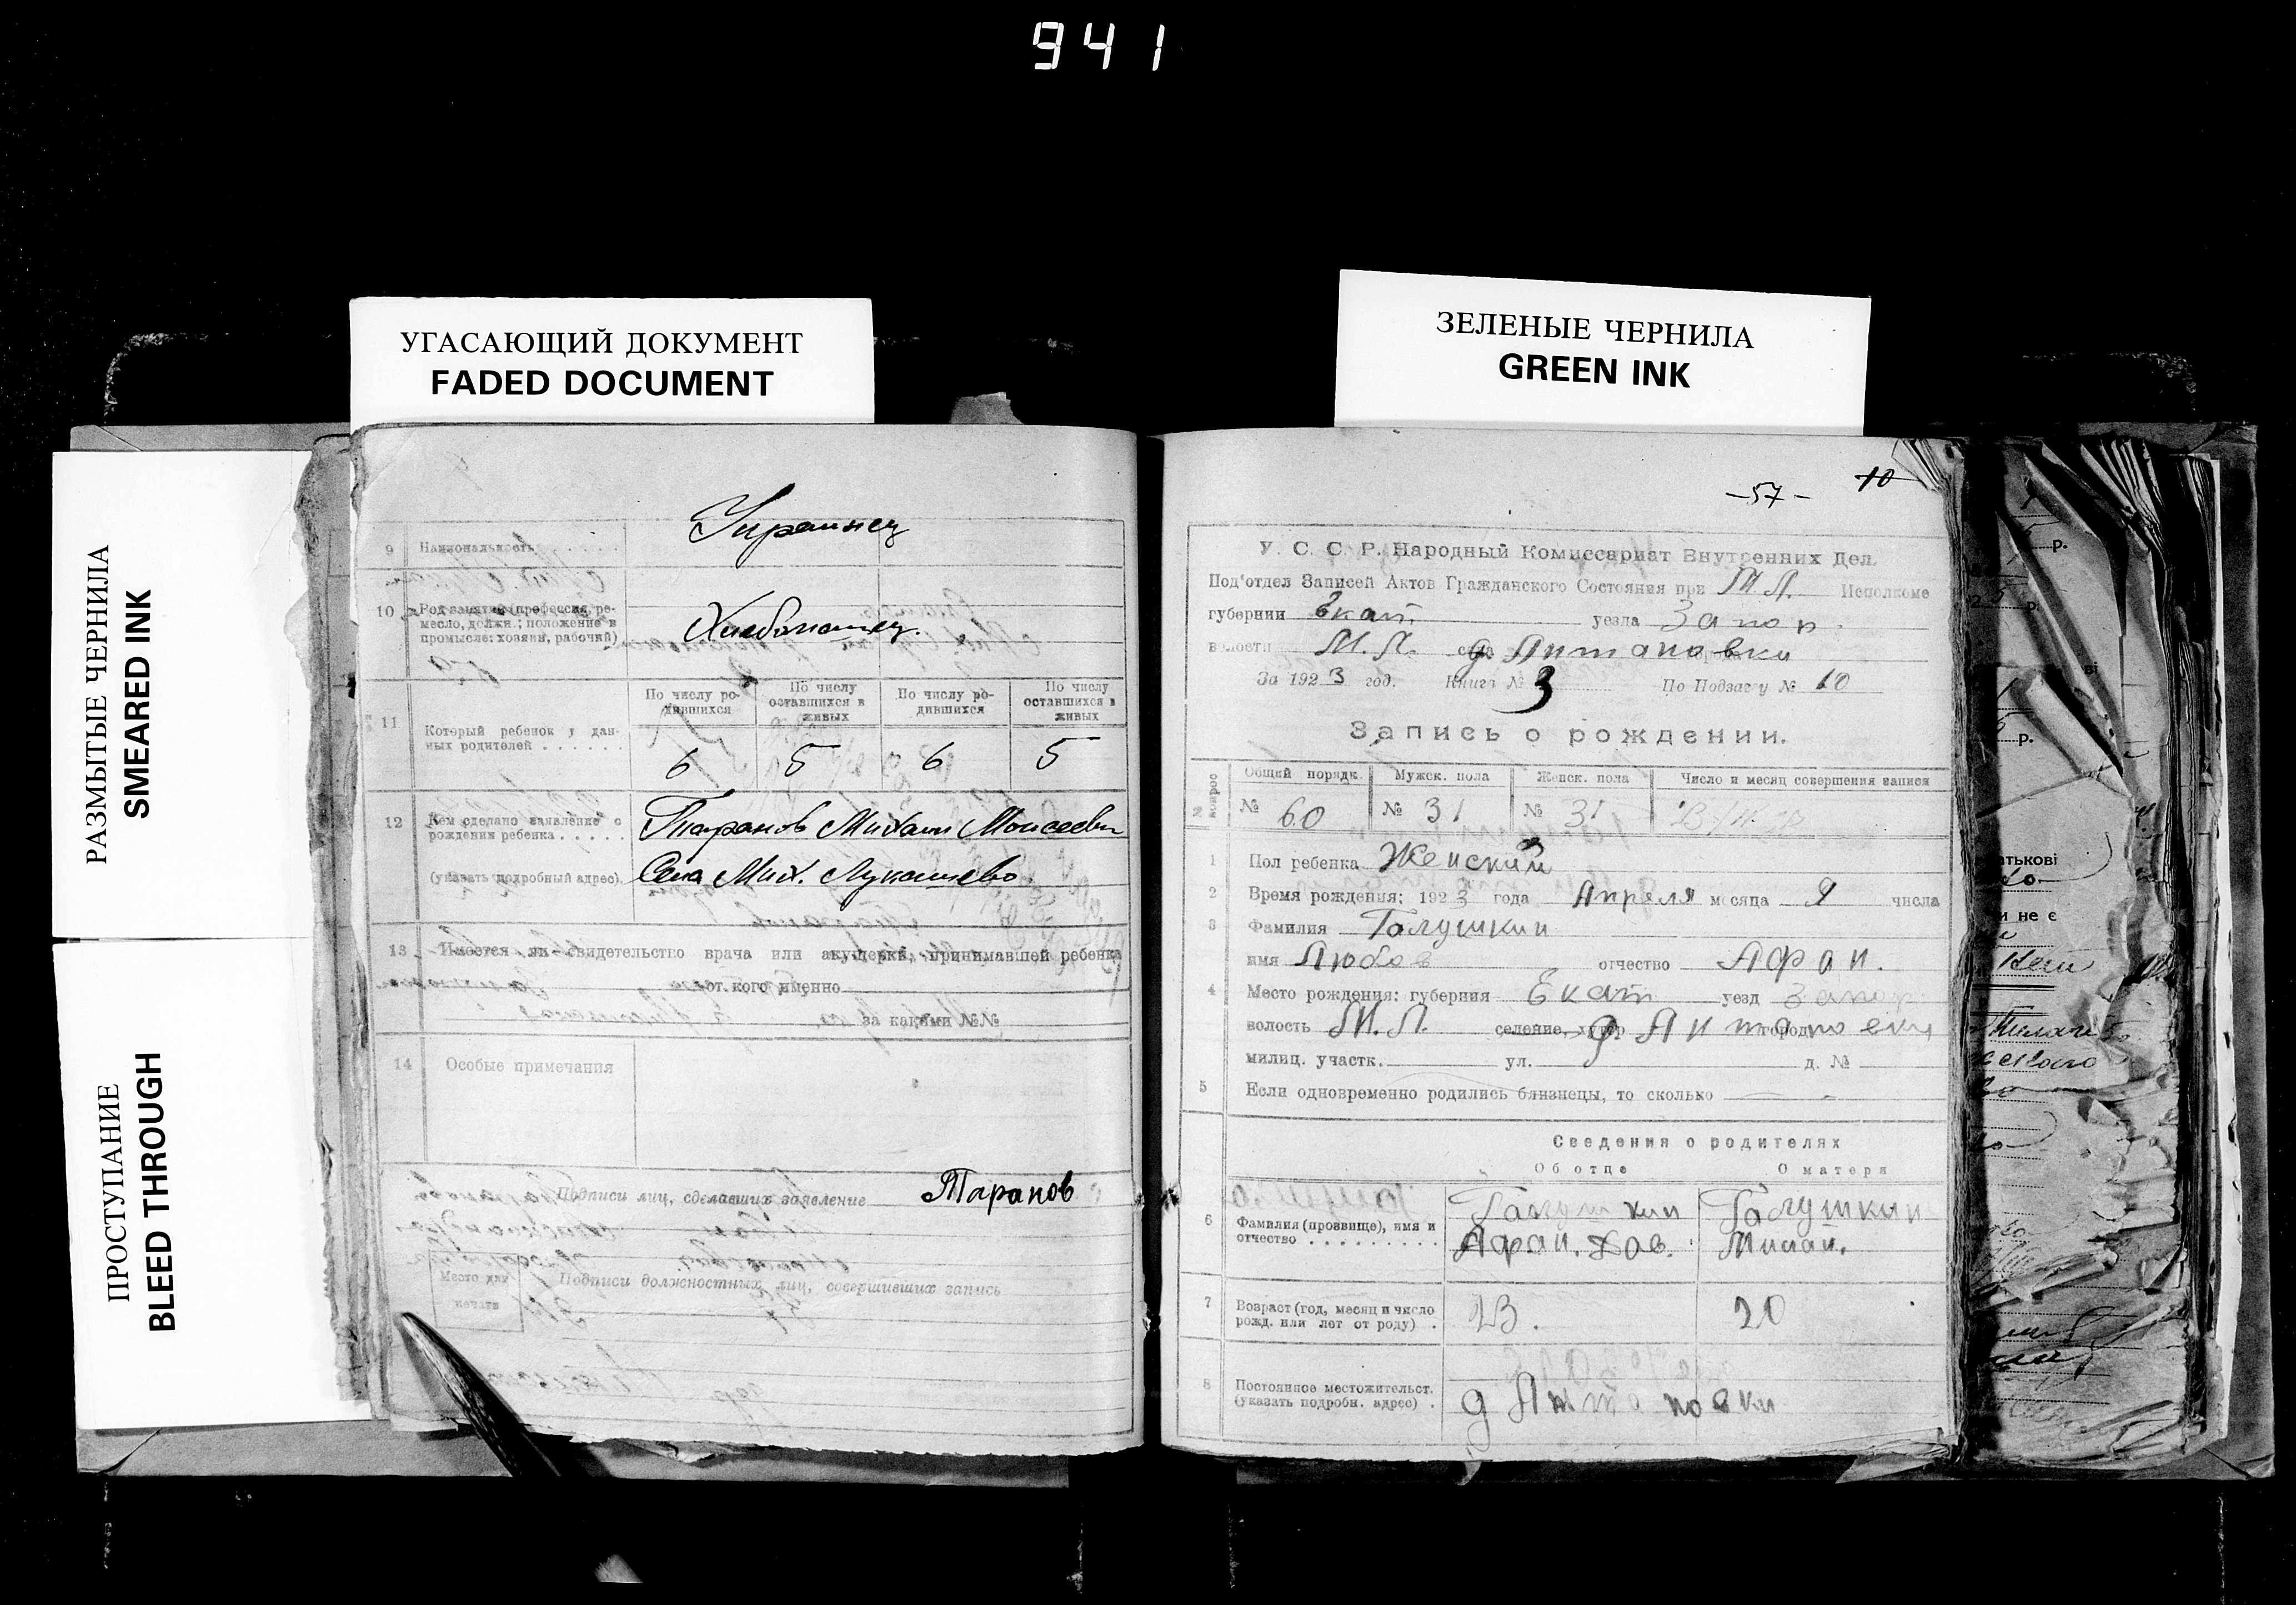 941
УГАСАЮЩИЙ ДОКУМЕНТ
FADED DOCUMENT
ЗЕЛЕНЫЕ ЧЕРНИЛА
GREEN INK
РАЗМЫТЫЕ ЧЕРНИЛА
SMEARED INK
ПРОСТУПАНИЕ
BLEED THROUGH
9 Национальность Украинец
10 Род занятий (профессия, ремесло, должн.; положение в
промысле: хозяин, рабочий)
Хлебопашец.
По числу родившихся
По числу оставшихся в живых
По числу родившихся
По числу оставшихся в живых
11 Который ребенок у данных родителей
6 5 6 5
12 Кем сделано заявление о рождения ребенка
Таранов Михаил Моисеевич
(указать подробный адрес). Села Мих. Лукашево
13 Имеется ли свидетельство врача или акушерки, принимавшей ребенка
от кого именно
за какими №№
14 Особые примечания
Подписи лиц, сделавших заявление Таранов
Место для печати
Подписи должностных лиц, совершивших запись
-57- 10
У. С. С. Р. Народный Комиссариат Внутренних Дел.
Под'отдел Записей Актов Гражданского Состояния при М.Л. Исполкоме
губернии Екат уезда Запор.
волости М.Л. села д. Антоновки
За 1923 год. Книга № 3 По Подзагсу № 10
Запись о рождении.
№ вопрос
Общий порядк. Мужск. пола Женск. пола Число и месяц совершения записи
№ 60 № 31 № 31
1 Пол ребенка Женский
2 Время рождения: 1923 года Апреля месяца 9 числа
3 Фамилия Галушкин
имя Любов отчество Афан.
4 Место рождения: губерния Екат уезд Запор.
волость М.Л. селение, хутор д. Антоновки город
милиц. участк. ул. д. №
5 Если одновременно родились близнецы, то сколько
Сведения о родителях
Об отце О матери
6 Фамилия (прозвище), имя и отчество
Галушкин
Афан.
Галушкин
7 Возраст (год, месяц и число рожд. или лет от роду)
23. 20
8 Постоянное местожительст. (указать подробн. адрес)
д Антоновки